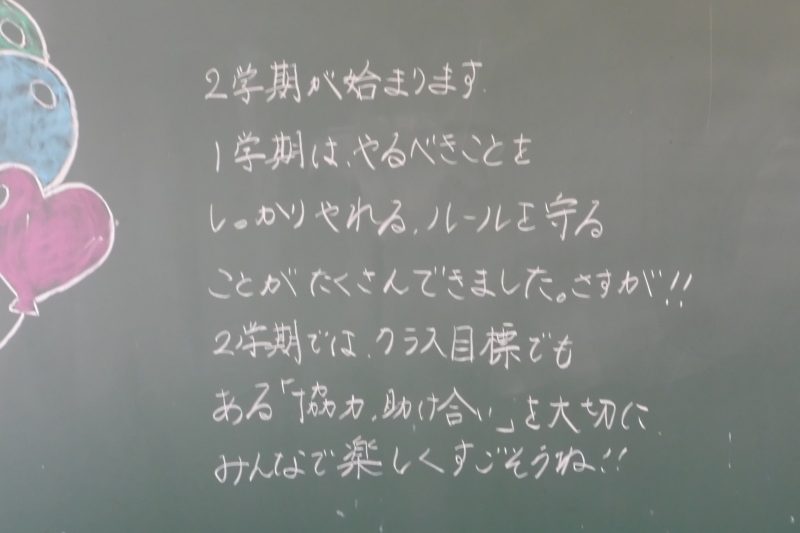 2学期が始まります
1学期は、やるべきことを
しっかりやれる、ルールを守る
ことがたくさんできました。さすが!!
2学期では、クラス目標でも
ある「協力、助け合い」を大切に
みんなで楽しくすごそうね!!